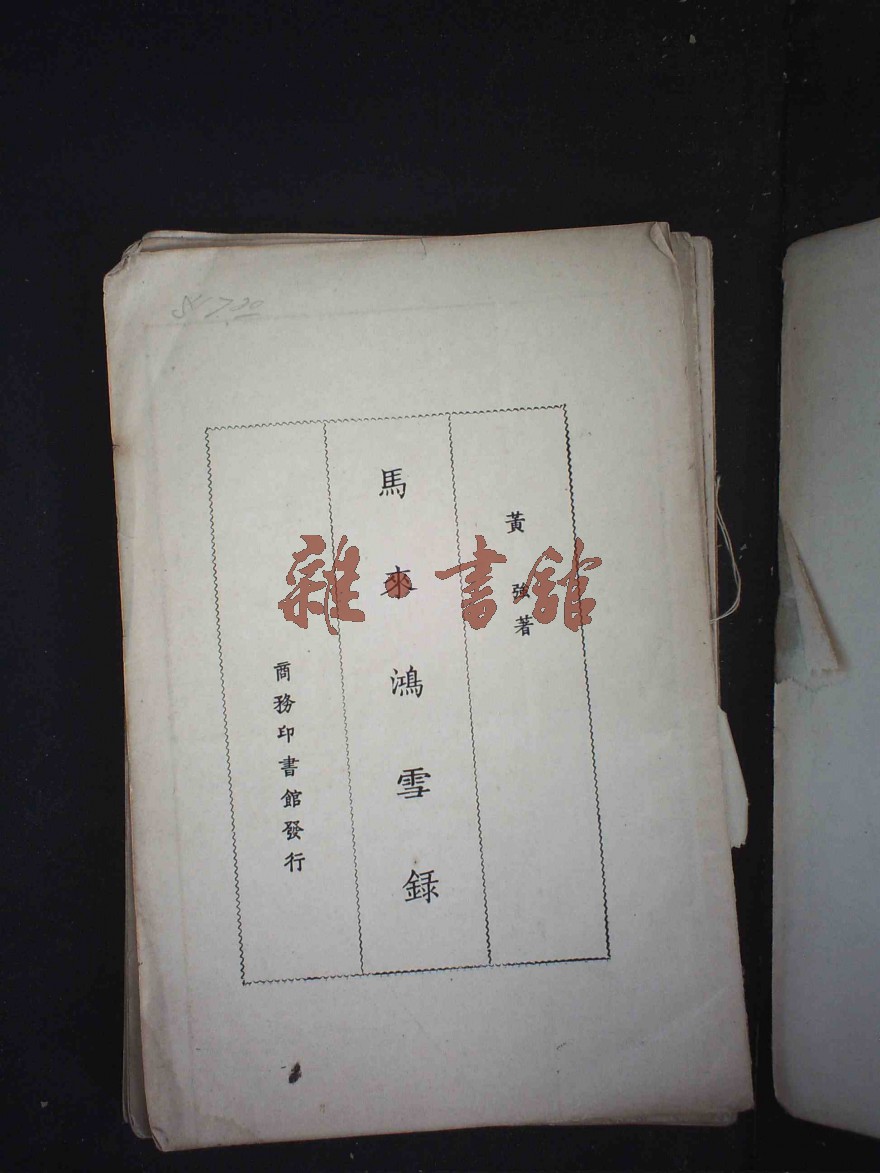 黃強著
馬來鴻雪録
商務印書館發行
雜書館